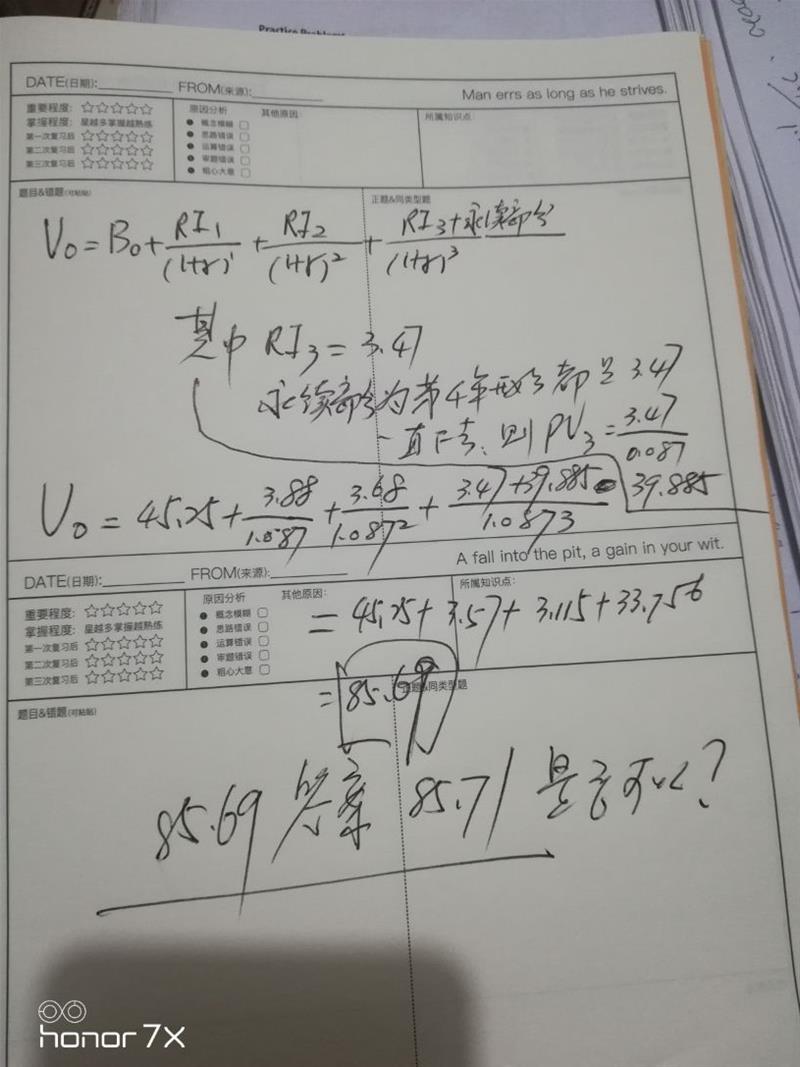 Practice Problems
DATE(日期): FROM(来源): Man errs as long as he strives.
重要程度: ☆☆☆☆☆
掌握程度: 星越多掌握越熟练
第一次复习后 ☆☆☆☆☆
第二次复习后 ☆☆☆☆☆
第三次复习后 ☆☆☆☆☆
原因分析 其他原因:
概念模糊
思路错误
运算错误
审题错误
粗心大意
所属知识点:
题目&错题(可粘贴)
正题&同类型题
V₀=B₀+RI₁/(1+r)¹+RI₂/(1+r)²+RI₃+永续部分/(1+r)³
其中 RI₃=3.47
永续部分为第4年开始都是3.47
一直下去,则PV₃=3.47/0.087
39.885
V₀=45.25+3.88/1.087+3.68/1.087²+3.47+39.885/1.0873
A fall into the pit, a gain in your wit.
DATE(日期): FROM(来源):
重要程度: ☆☆☆☆☆
掌握程度: 星越多掌握越熟练
第一次复习后 ☆☆☆☆☆
第二次复习后 ☆☆☆☆☆
第三次复习后 ☆☆☆☆☆
原因分析 其他原因:
概念模糊
思路错误
运算错误
审题错误
粗心大意
所属知识点:
=45.25+3.57+3.115+33.756
=85.69
题目&错题(可粘贴)
正题&同类型题
85.69 答案 85.71 是否可以?
honor 7X